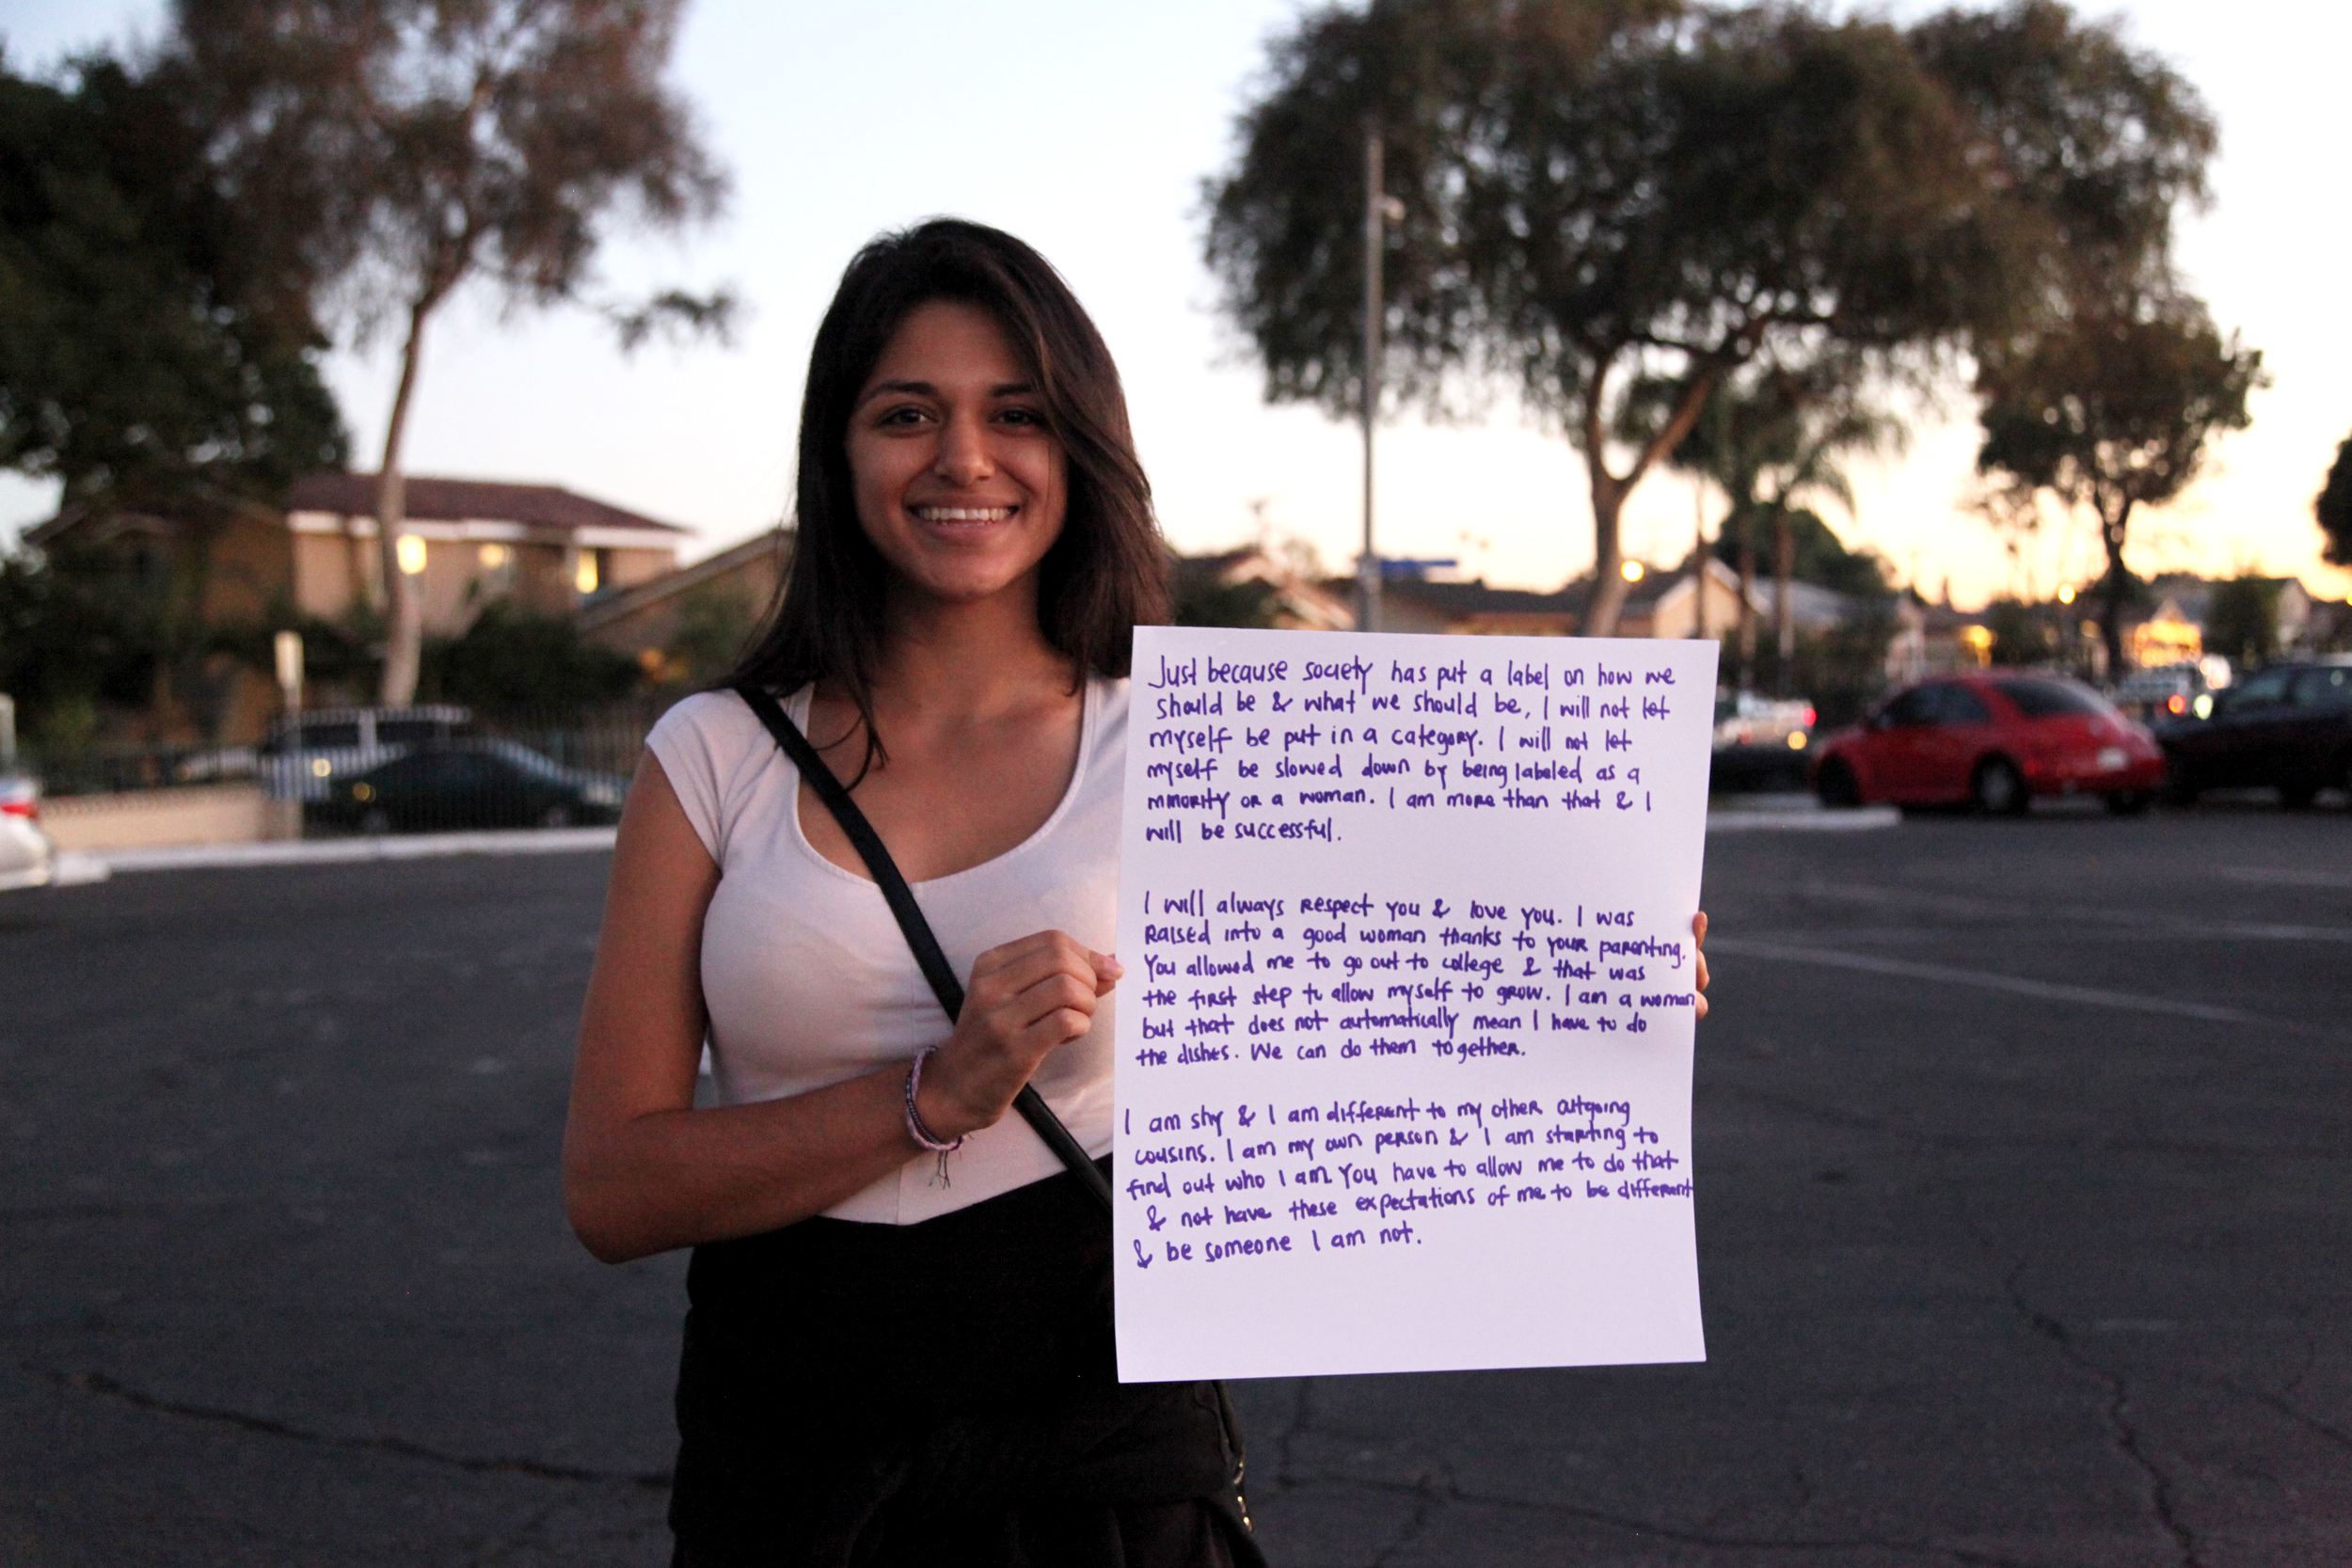 Just because society has put a label on how we
should be & what we should be, I will not let
myself be put in a category. I will not let
myself be slowed down by being labeled as a
minority or a woman. I am more than that & I
will be successful.
I will always respect you & love you. I was
raised into a good woman thanks to your parenting.
You allowed me to go out to college & that was
the first step to allow myself to grow. I am a woman
but that does not automatically mean I have to do
the dishes. We can do them together.
I am shy & I am different to my other outgoing
cousins. I am my own person & I am starting to
find out who I am. You have to allow me to do that
& not have these expectations of me to be different
& be someone I am not.